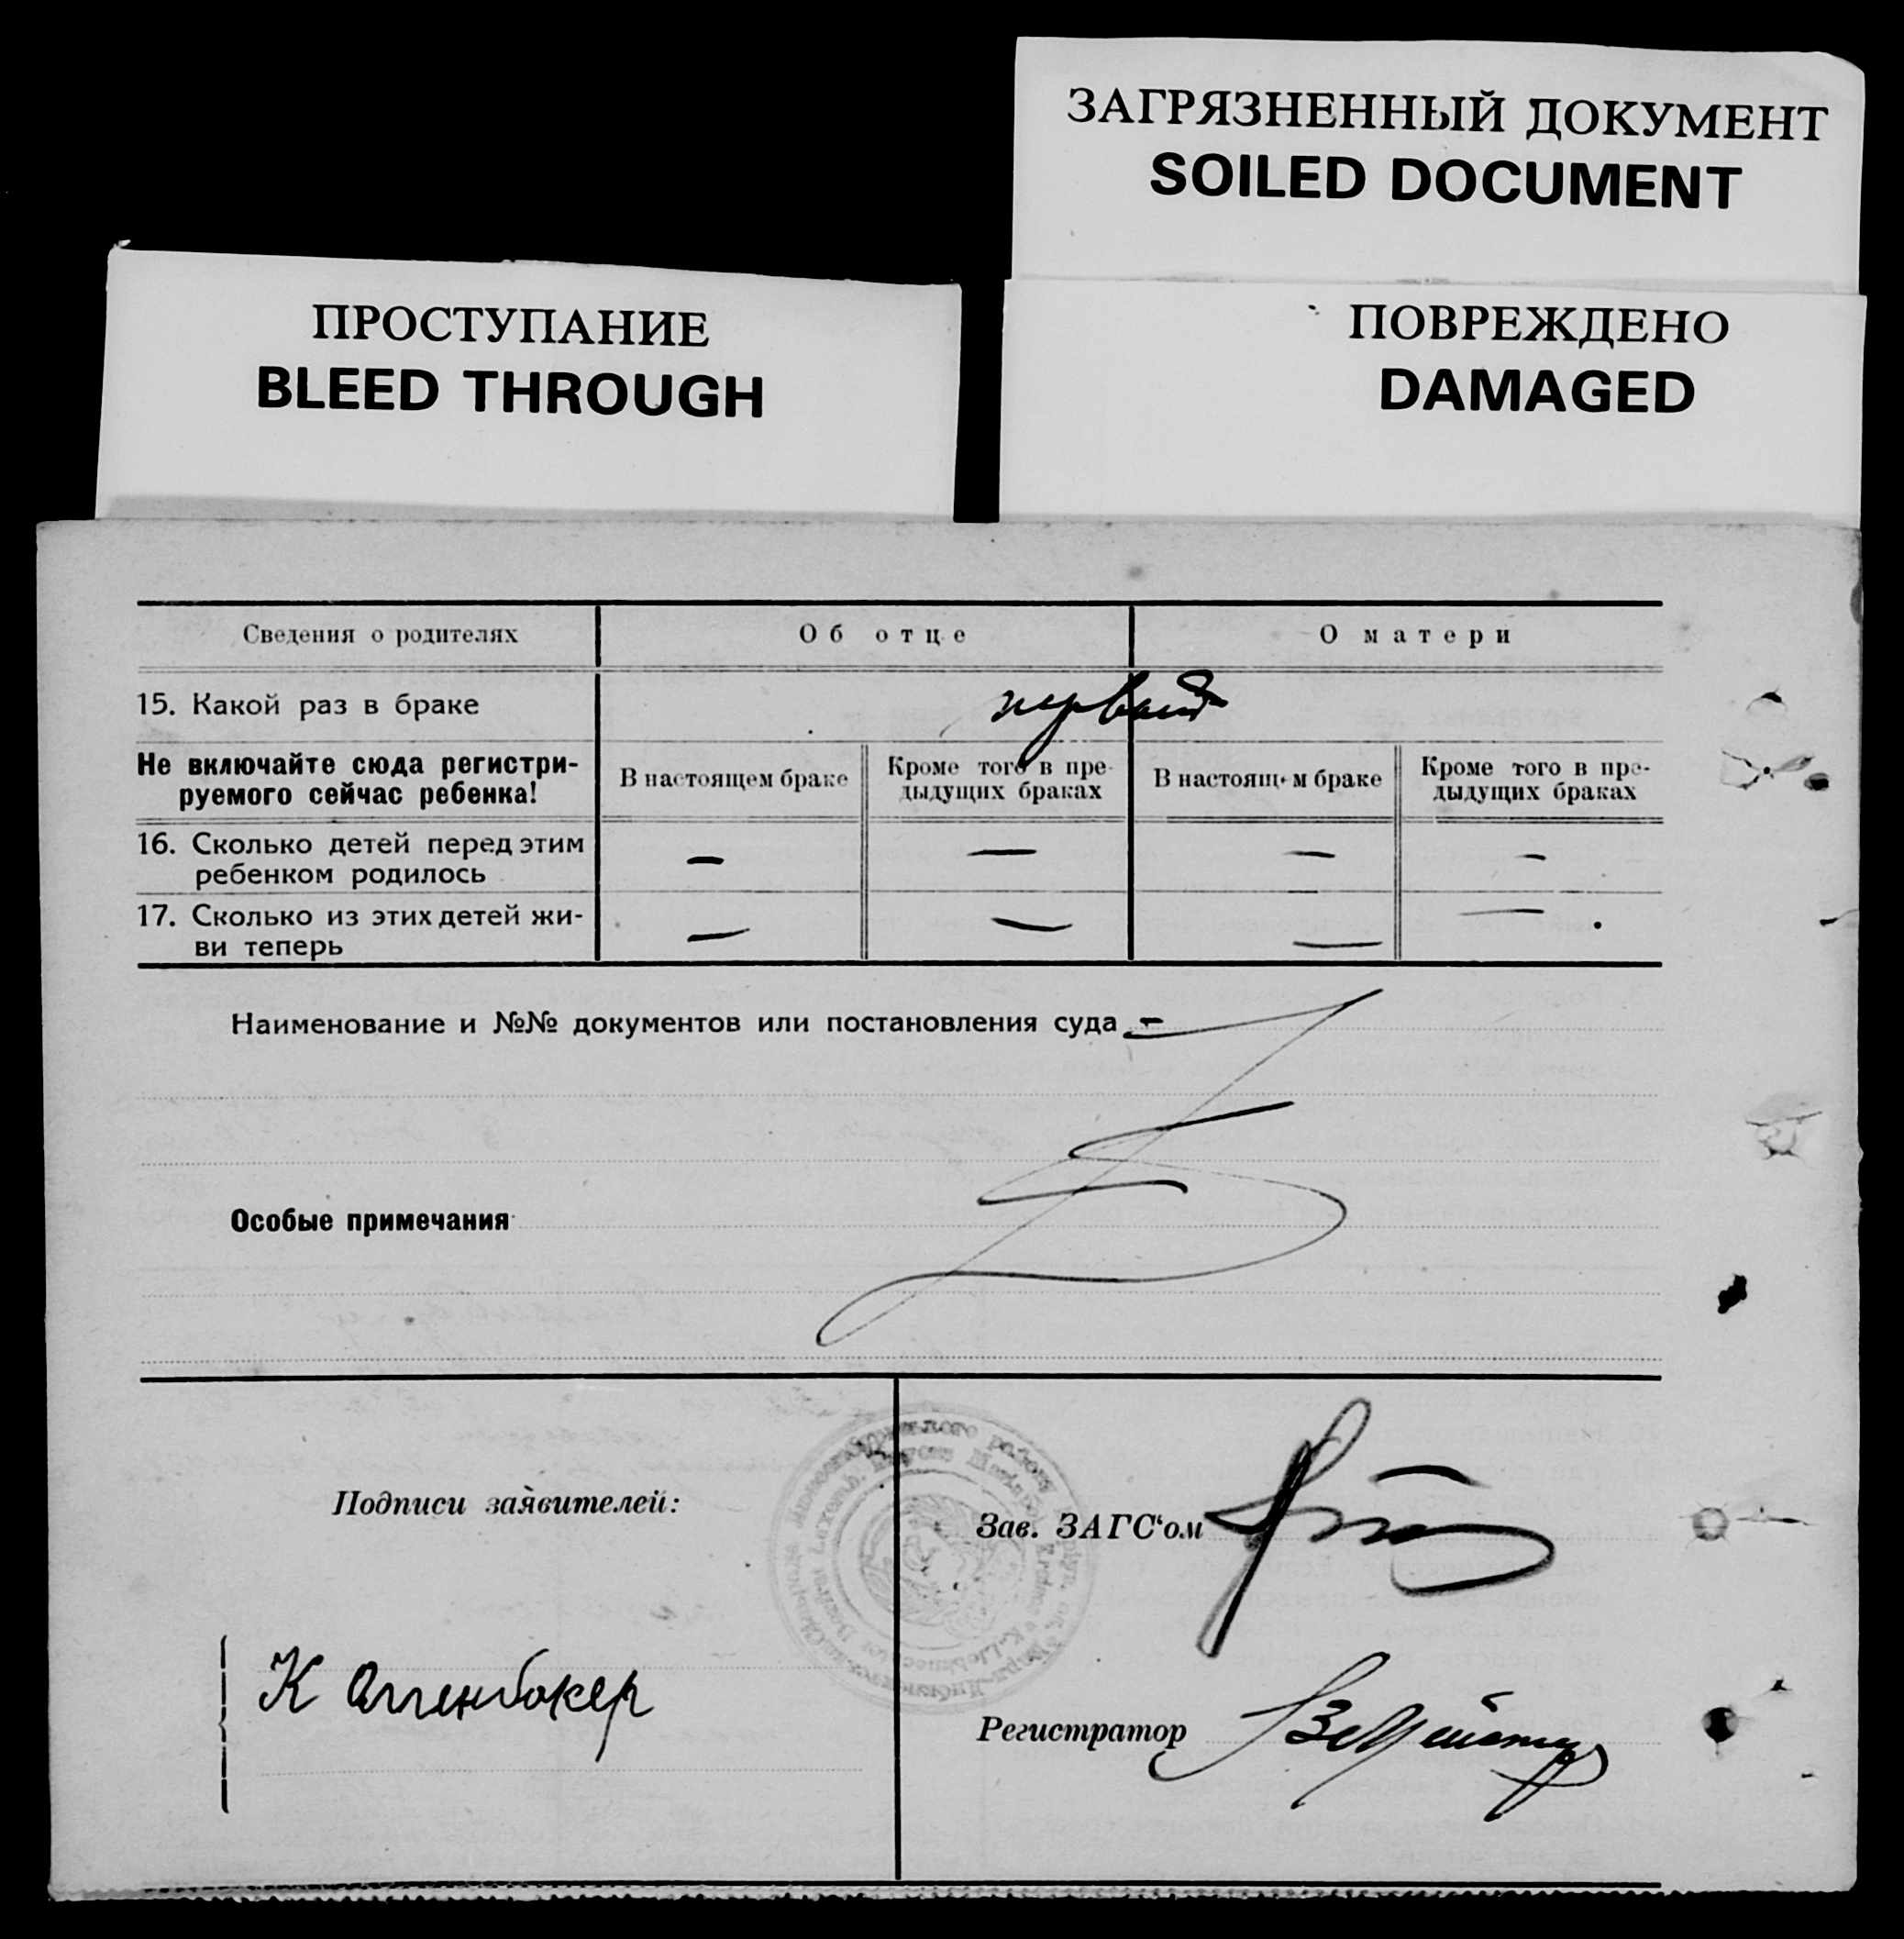 ЗАГРЯЗНЕННЫЙ ДОКУМЕНТ
SOILED DOCUMENT
ПРОСТУПАНИЕ
BLEED THROUGH
ПОВРЕЖДЕНО
DAMAGED
Сведения о родителях
Об отце
О матери
15. Какой раз в браке
первый
Не включайте сюда регистри-
руемого сейчас ребенка!
В настоящем браке
Кроме того в пре-
дыдущих браках
В настоящем браке
Кроме того в пре-
дыдущих браках
16. Сколько детей перед этим
ребенком родилось
— — — —
17. Сколько из этих детей жи-
ви теперь
— — — —
Наименование и №№ документов или постановления суда —
Особые примечания
Подписи заявителей:
Зав. ЗАГС‘ом
К
Регистратор